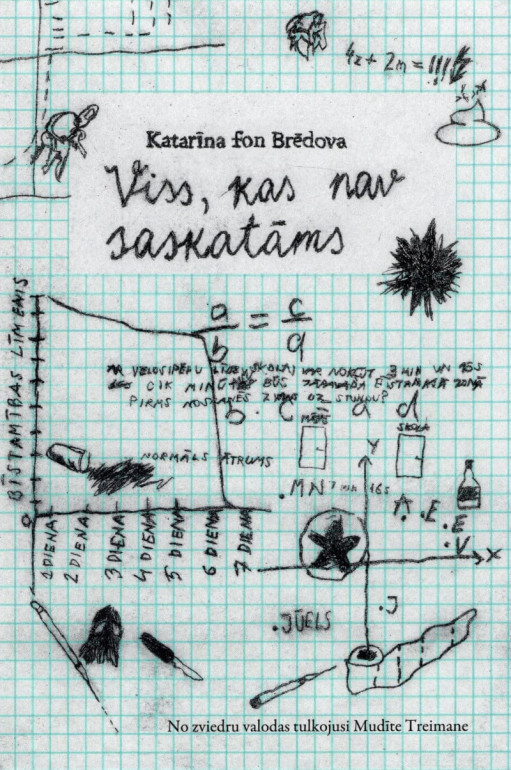 4z + 2m =
Katarīna fon Brēdova
Viss, kas nav
saskatāms
BĪSTAMĪBAS LĪMENIS
a = c
b q
AR VELOSIPĒDU LĪDZ SKOLAI VAR NOKĻŪT 3 MIN UN 16S
CIK MINŪTES BŪS JĀPAVADA BĪSTAMAJĀ ZONĀ
PIRMS NOSKANĒS ZVANS UZ STUNDU?
b · c a d
MĀJAS
SKOLA
NORMĀLS ĀTRUMS
Y
MN
A
E
E
V
X
1 DIENA
2 DIENA
3 DIENA
4 DIENA
5 DIENA
6 DIENA
7 DIENA
JŪELS
J
No zviedru valodas tulkojusi Mudīte Treimane